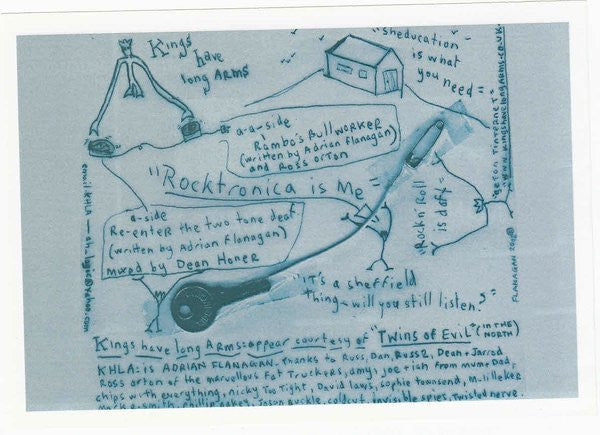 Kings
have
long ARMS
"sheducation"
is what
you need =
"get on Tinternet"
www.kingshavelongarms.co.uk
a-a-side
Rambo's Bullworker
(written by Adrian Flanagan)
and Ross Orton
"Rocktronica is Me"
a-side
Re-enter the two tone deaf
(written by Adrian Flanagan)
mixed by Dean Honer
"Rock n' Roll
is daft"
FLANAGAN
"It's a sheffield
thing - will you still listen?"
Kings have long Arms: appear courtesy of "Twins of Evil" (in the north)
KHLA: is ADRIAN FLANAGAN. Thanks to Russ, Dan, Russ2, Dean + Jarrod
Ross orton of the marvellous Fat Truckers, amy, joe + ian from mum + Dad,
chips with everything, nicky Too Tight, David laws, sophie townsend, m. lilleker
mark e. smith, phillip oakey, Jason Buckle, coldcut, invisible spies, Twisted nerve.